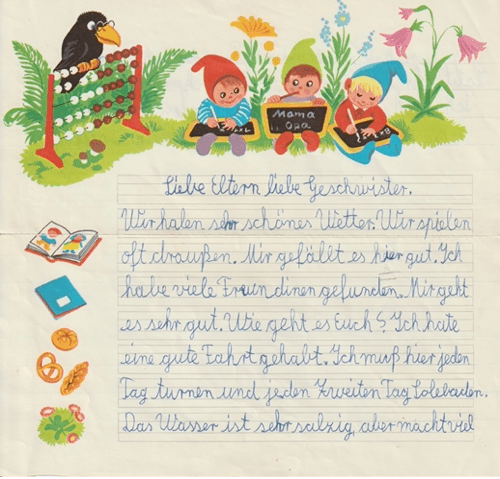 Mama
Opa
Liebe Eltern liebe Geschwister.
Wir haben sehr schönes Wetter. Wir spielen
oft draußen. Mir gefällt es hier gut. Ich
habe viele Freundinen gefunden. Mir geht
es sehr gut. Wie geht es Euch? Ich hate
eine gute Fahrt gehabt. Ich muß hier jeden
Tag turnen und jeden Zweiten Tag Solebaden.
Das Wasser ist sehr salzig, aber macht viel